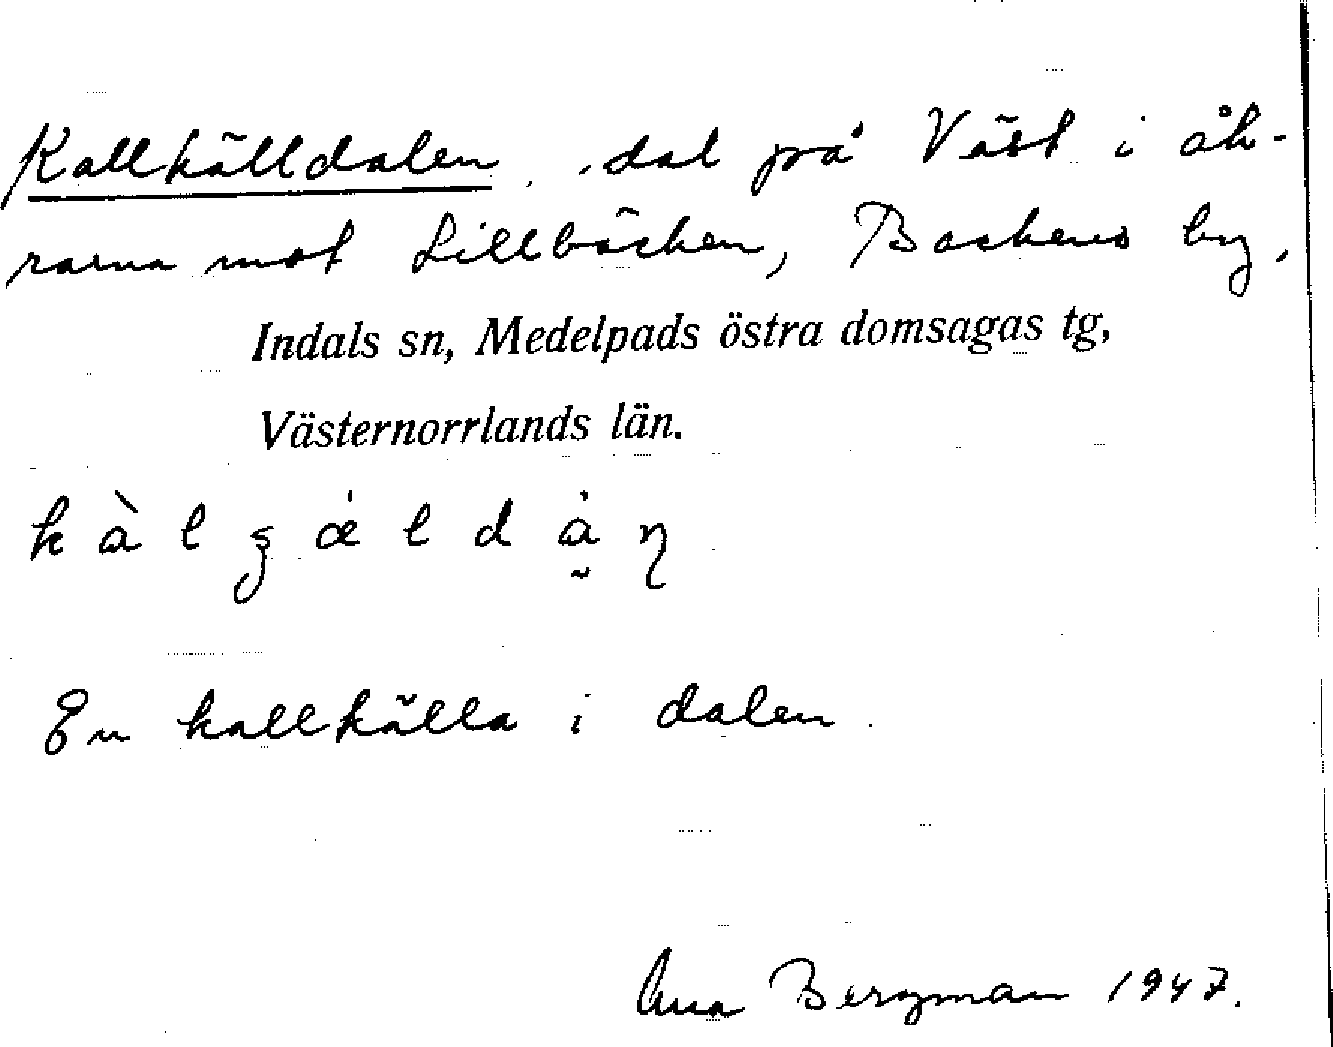 Kallkälldalen, dal på Väst i åk-
rarna mot Lillbäcken, Backens by,
Indals sn, Medelpads östra domsagas tg,
Västernorrlands län.
En kallkälla i dalen.
Bergman 1947.